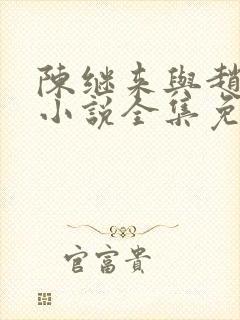 陳继来與趙
小說全集免
官富貴